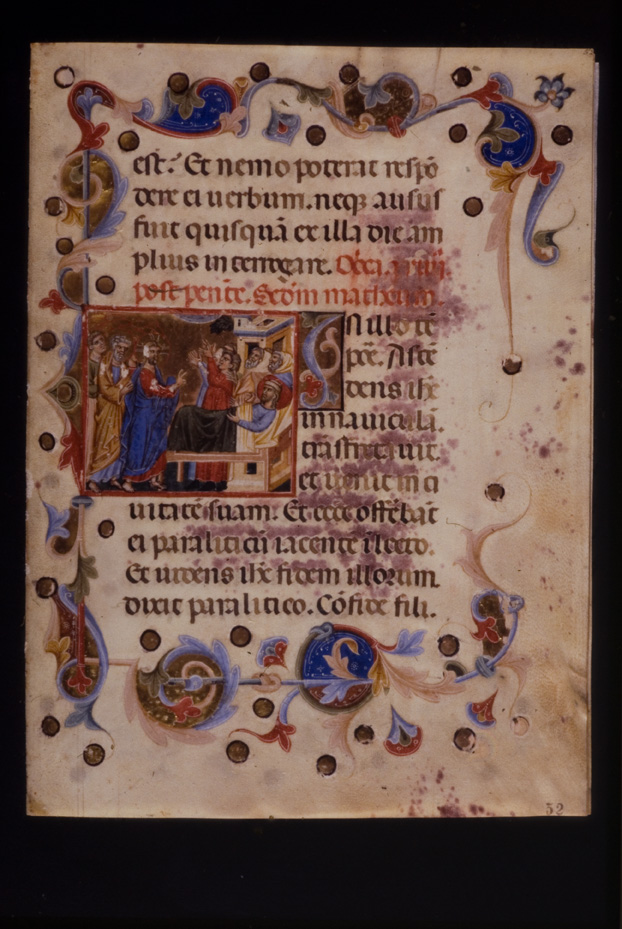 est.' Et nemo poterat respō
dere ei uerbum. neq3 ausus
fuit quisquā ex illa die am
plius interrogare. Dñca xviiij.
post pentē. Secdm matheum.
N illo tē
pōē. Ascē
dens ihē
in nauiculā.
trāsfretauit.
et uenit in ci
uitatē suam. Et ecce offēbāt
ei paraliticū iacentē ī lecto.
Et uidēns ihē fidem illorum.
dixit paralitico. Cōfide fili.
32